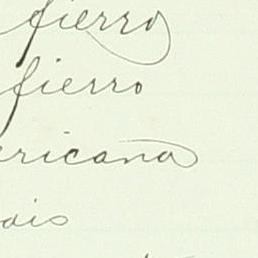 fierro
fierro
ericana
ais